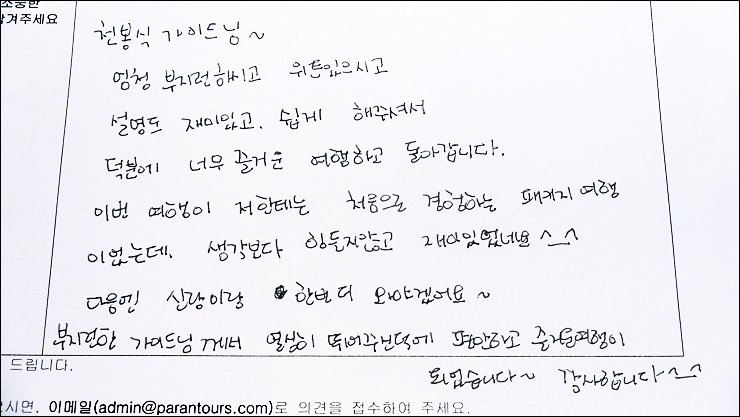 소중한
남겨주세요
천봉식 가이드님~
엄청 부지런하시고 위트있으시고
설명도 재미있고, 쉽게 해주셔서
덕분에 너무 즐거운 여행하고 돌아갑니다.
이번 여행이 저한테는 처음으로 경험하는 패키지 여행
이었는데, 생각보다 힘들지않고 재미있었네요 ^_^
다음엔 신랑이랑 한번 더 와야겠어요~
부지런한 가이드님 께서 열심히 뛰어주신덕에 편안하고 즐거운여행이
되었습니다~ 감사합니다^_^
드립니다.
시면, 이메일(admin@parantours.com)로 의견을 접수하여 주세요.